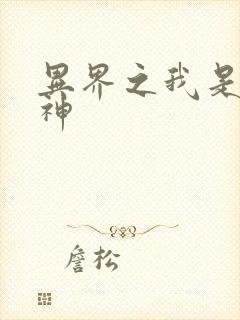 異界之我是
神
詹松